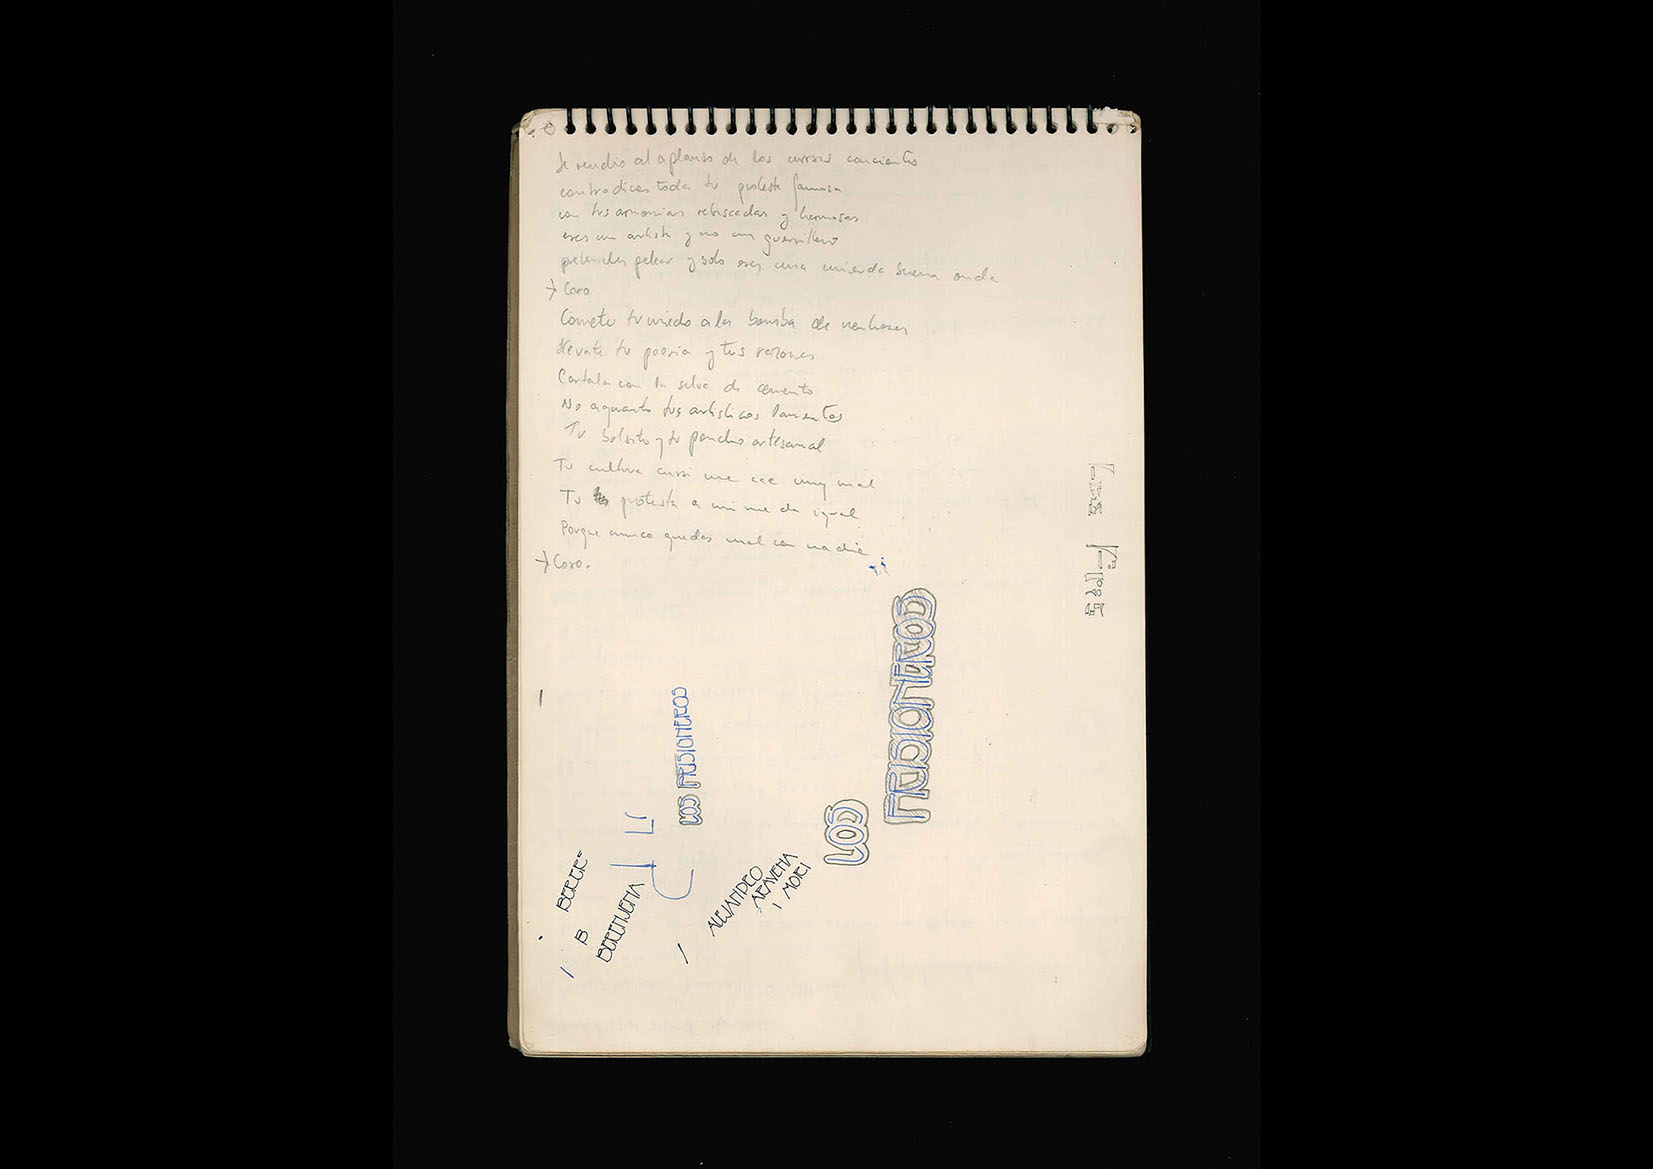 Se rendio al aplauso de los cursis concientes
contradices toda tu protesta famosa
con tus armonias rebuscadas y hermosas
eres un artista y no un guerrillero
pretendes pelear y solo eres una mierda buena onda
→ Coro
Cometu tu miedo a las bomba de neutrones
llevate tu poesia y tus razones
Cortala con la selva de cemento
No aguanto tus artisticos lamentos
Tu bolsito y tu poncho artesanal
Tu cultura cursi me cae muy mal
Tu protesta a mi me da igual
Porque nunca quedas mal con nadie
→ Coro.
LOS PRISIONEROS
LOS PRISIONEROS
BERGER=
B
BERENJENA
ALEJANDRO
ARAVENA
MORI